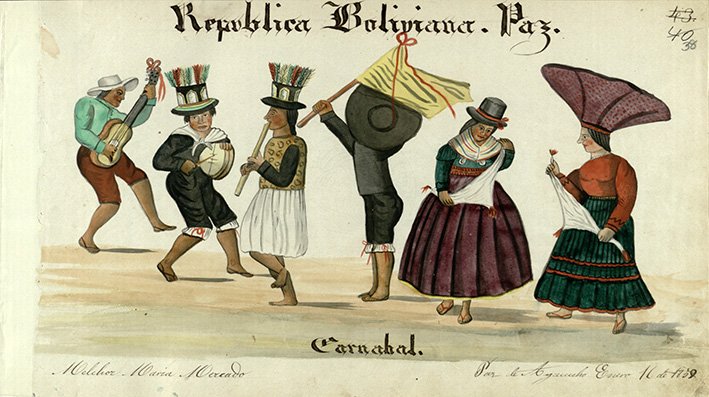 Republica Boliviana. Paz.
43.
40
38
Carnabal.
Melchor Maria Mercado
Paz de Ayacucho Enero 16 de 1859